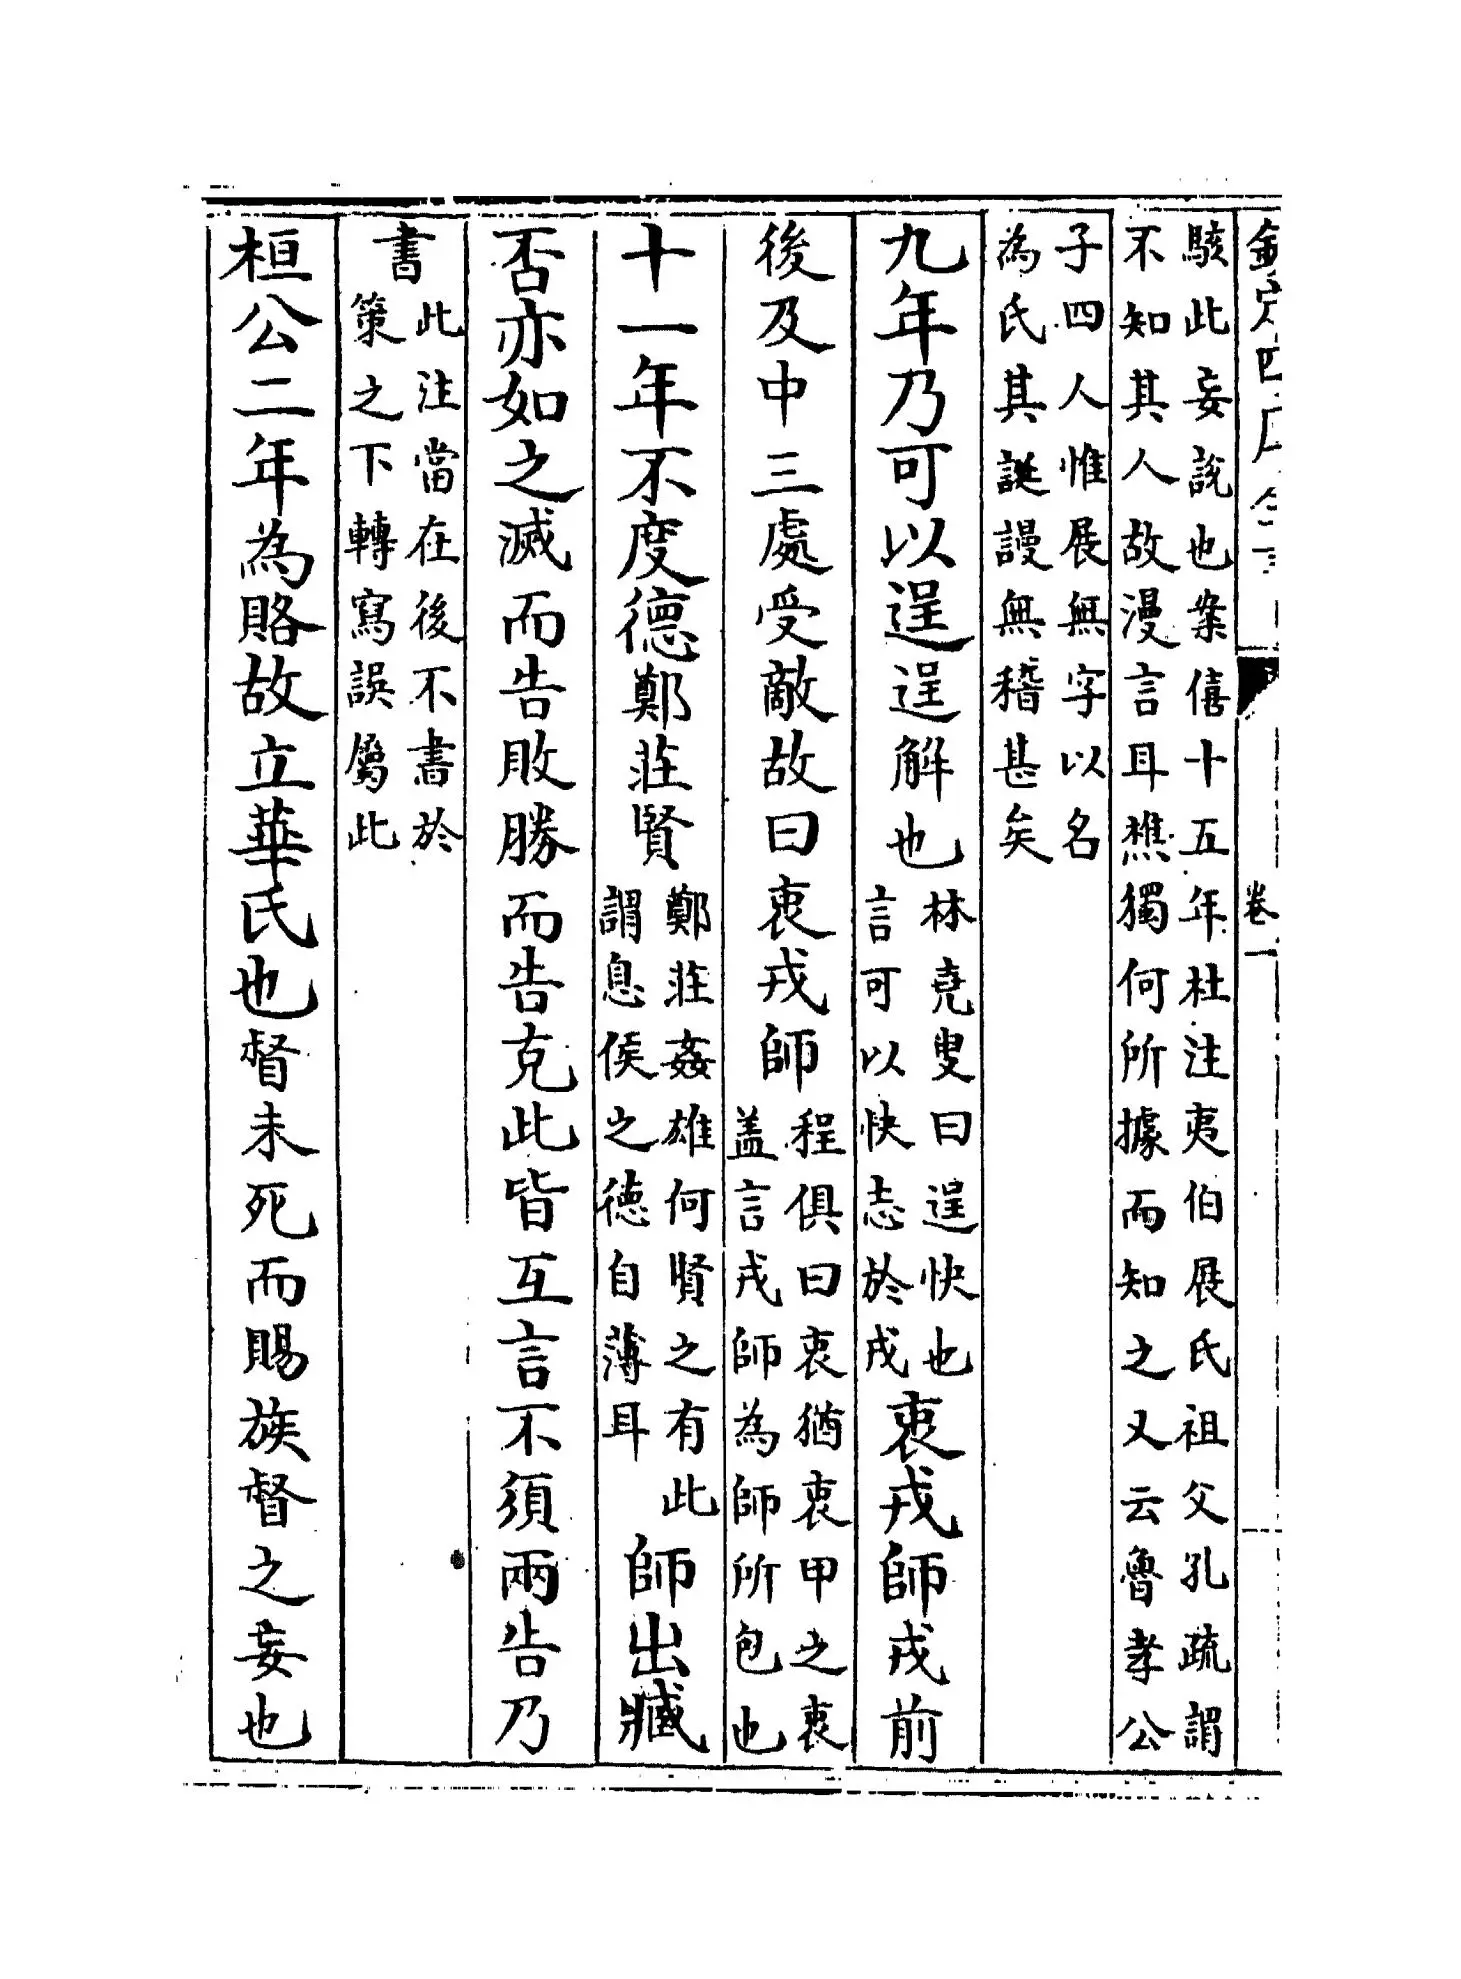 欽定四庫全書
卷一
駭此妄説也案僖十五年杜注夷伯展氏祖父孔疏謂
不知其人故漫言耳樵獨何所據而知之又云魯孝公
子四人惟展無字以名
為氏其誕謾無稽甚矣
九年乃可以逞逞解也
林堯叟曰逞快也
言可以快志於戎
衷戎師戎前
後及中三處受敵故曰衷戎師
程俱曰衷猶衷甲之衷
盖言戎師為師所包也
十一年不度德鄭莊賢
鄭莊姦雄何賢之有此
謂息侯之德自薄耳
師出臧
否亦如之滅而告敗勝而告克此皆互言不須兩告乃
書
此注當在後不書於
策之下轉寫誤屬此
桓公二年為賂故立華氏也督未死而賜族督之妄也